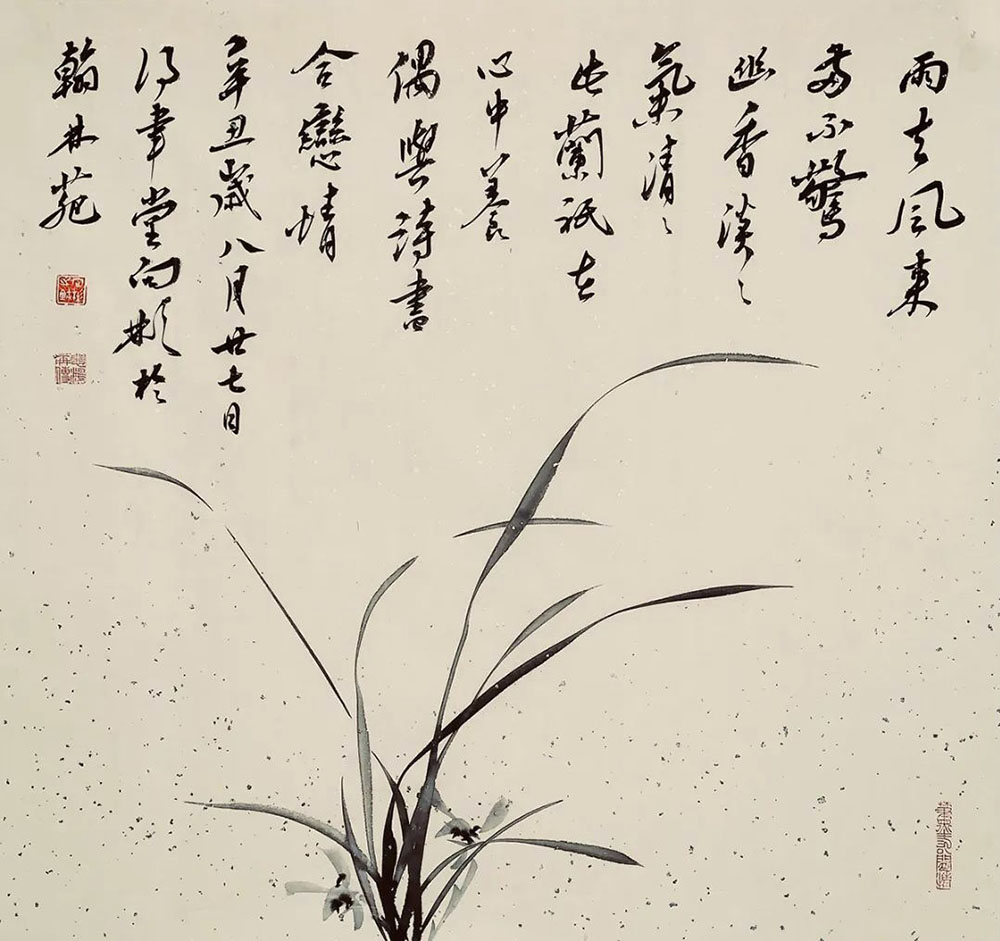 雨去风来
不驚
幽香淡々
氣清々
此蘭祇在
心中養
偶與詩書
合戀情
辛丑歲八月廿七日
堂向彬於
翰林苑